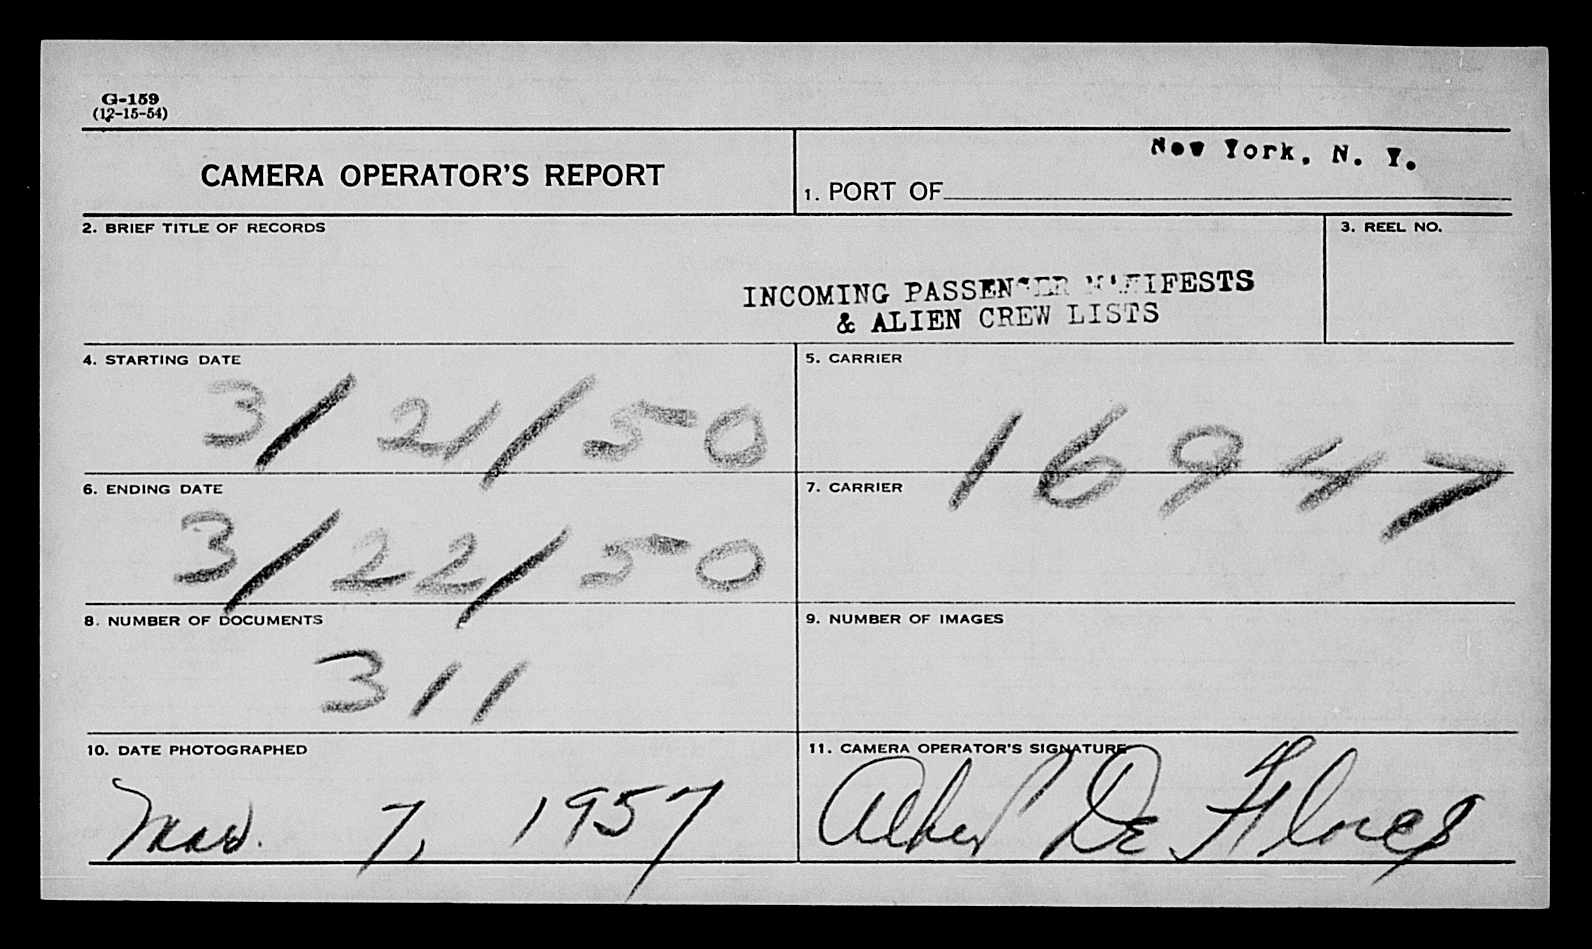 G-159
(12-15-54)
CAMERA OPERATOR'S REPORT
1. PORT OF New York, N. Y.
2. BRIEF TITLE OF RECORDS
3. REEL NO.
INCOMING PASSENGER MANIFESTS
& ALIEN CREW LISTS
4. STARTING DATE
3/21/50
5. CARRIER
16947
6. ENDING DATE
3/22/50
7. CARRIER
8. NUMBER OF DOCUMENTS
311
9. NUMBER OF IMAGES
10. DATE PHOTOGRAPHED
Mar. 7, 1957
11. CAMERA OPERATOR'S SIGNATURE
Albert De Flores